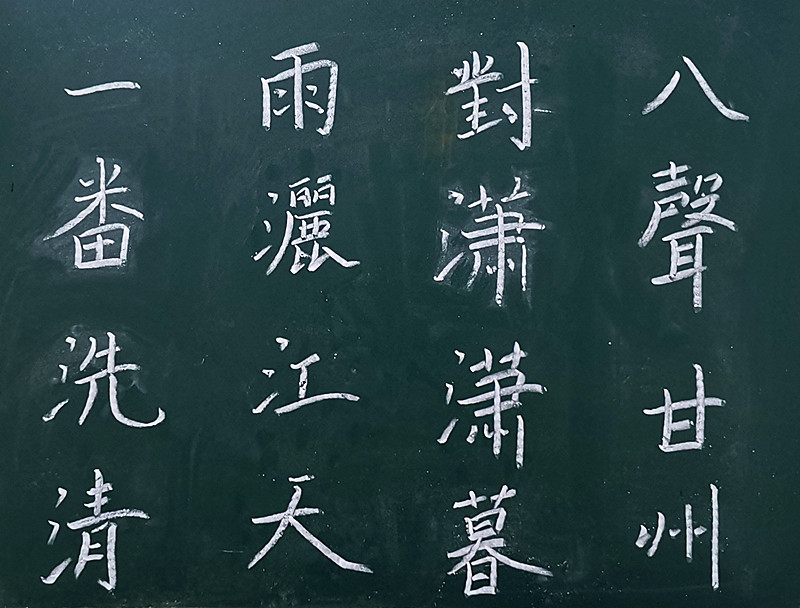 八聲甘州
對瀟瀟暮
雨灑江天
一番洗清